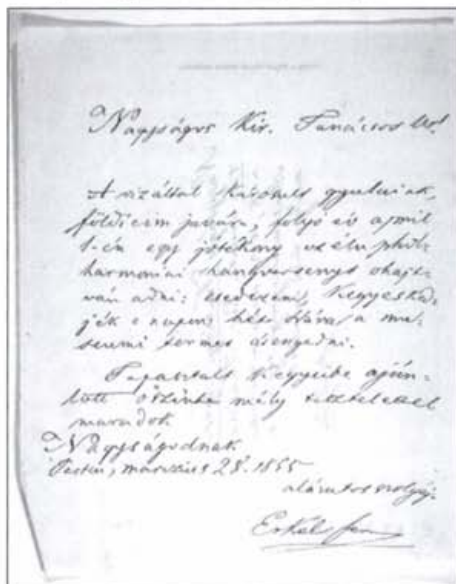 Nagyságos Kir. Tanácsos Úr!
A vizáltal károsult gyulaiak,
földieim javára, folyó év april
1-én egy jótékony czélu phil-
harmoniai hangversenyt ohajt-
ván adni: esedezem, kegyesked-
jék e napon hét órára a mu-
seumi termet átengedni.
Tapasztalt kegyeibe aján-
lott őszinte mély tisztelettel
maradok
Nagyságodnak
Pesten, márczius 28. 1855
alázatos szolgája
Erkel